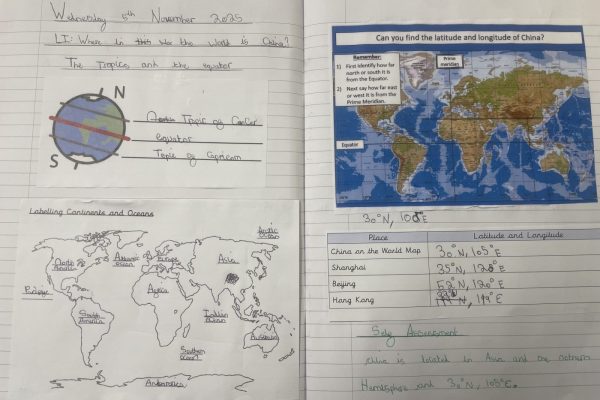 Wednesday 5th November 2025
LI: Where in the world is China?
The Tropics and the equator
N
Tropic of Cancer
equator
Tropic of Capricorn
S
Labelling Continents and Oceans
Arctic Ocean
North America
Atlantic Ocean
Europe
Asia
Africa
Pacific
South America
Indian Ocean
Australia
Southern Ocean
Antarctica
Can you find the latitude and longitude of China?
Remember:
1) First identify how far north or south it is from the Equator.
2) Next say how far east or west it is from the Prime Meridian.
Prime meridian
Equator
30°N, 105°E
Place Latitude and Longitude
China on the World Map 30°N, 105°E
Shanghai 35°N, 120°E
Beijing 52°N, 120°E
Hong Kong N, 119°E
Self Assessment
China is located in Asia and the nothern
Hemisphere and 30°N, 105°E.